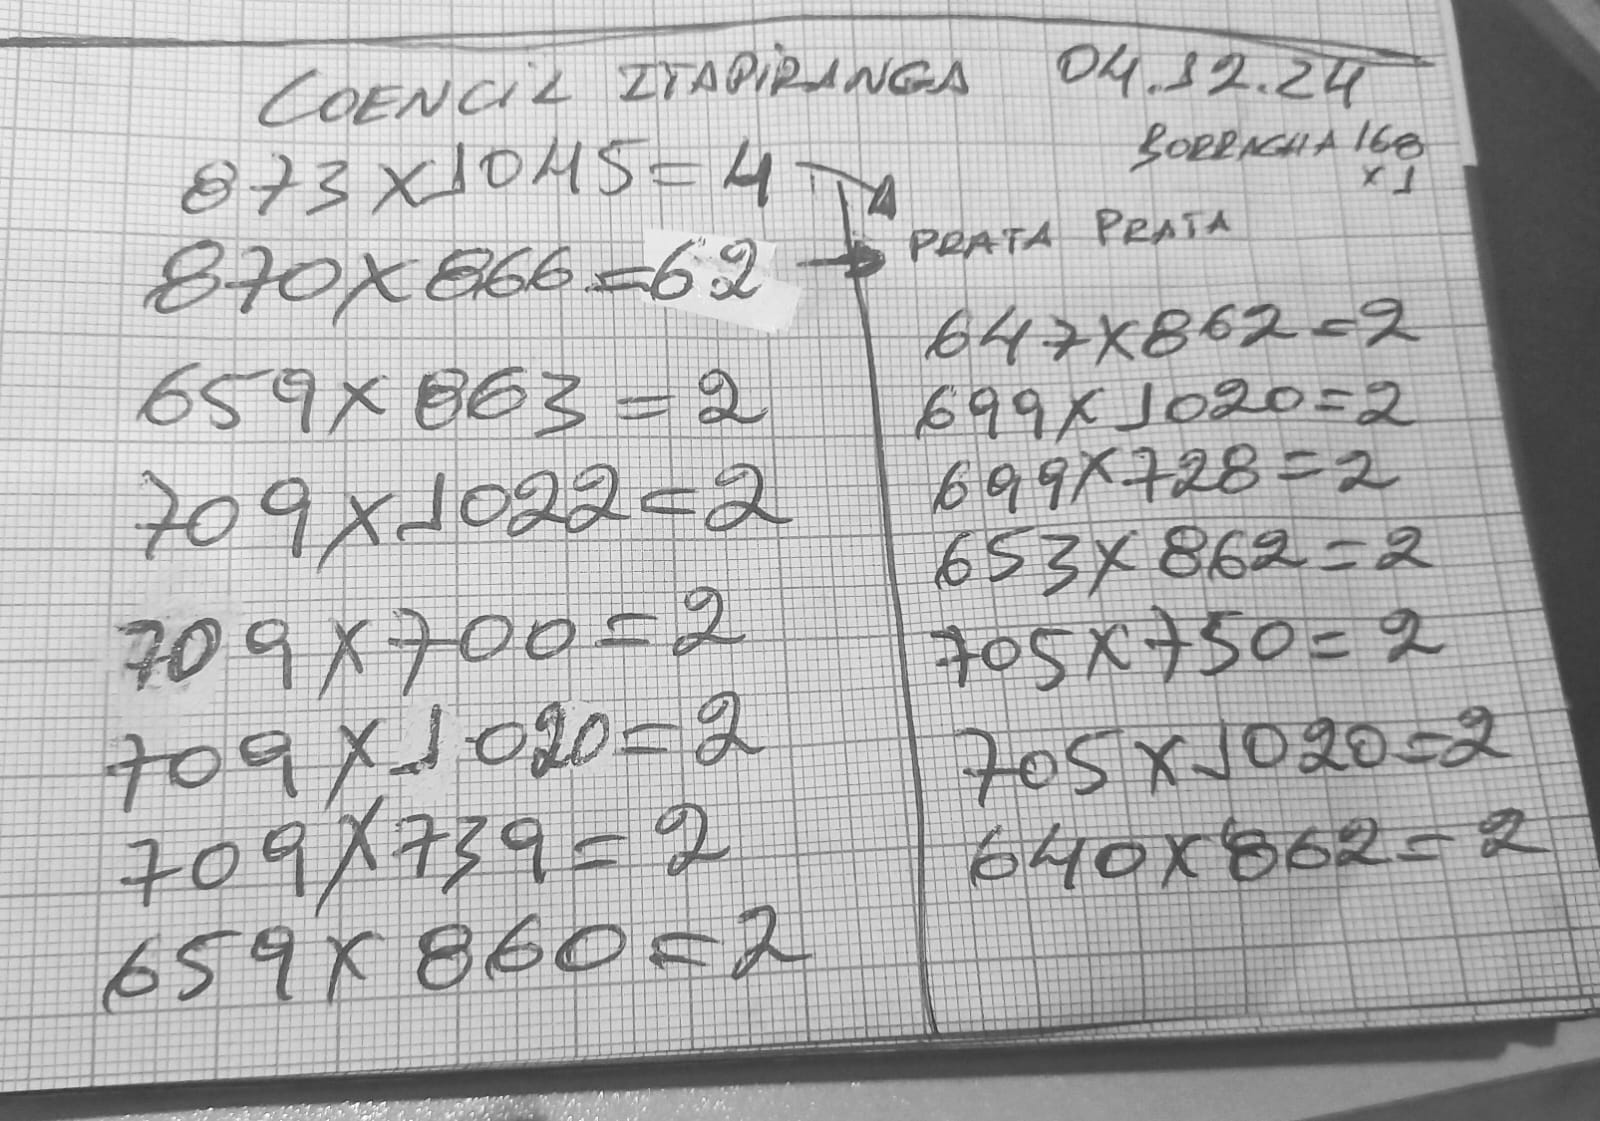 COENCIL ITAPIRANGA 04.12.24
BORRACHA 168
x 1
873x1045=4
870x866=62
659x863=2
709x1022=2
709x700=2
709x1020=2
709x739=2
659x860=2
PRATA PRATA
647x862=2
699x1020=2
699x728=2
653x862=2
705x750=2
705x1020=2
640x862=2